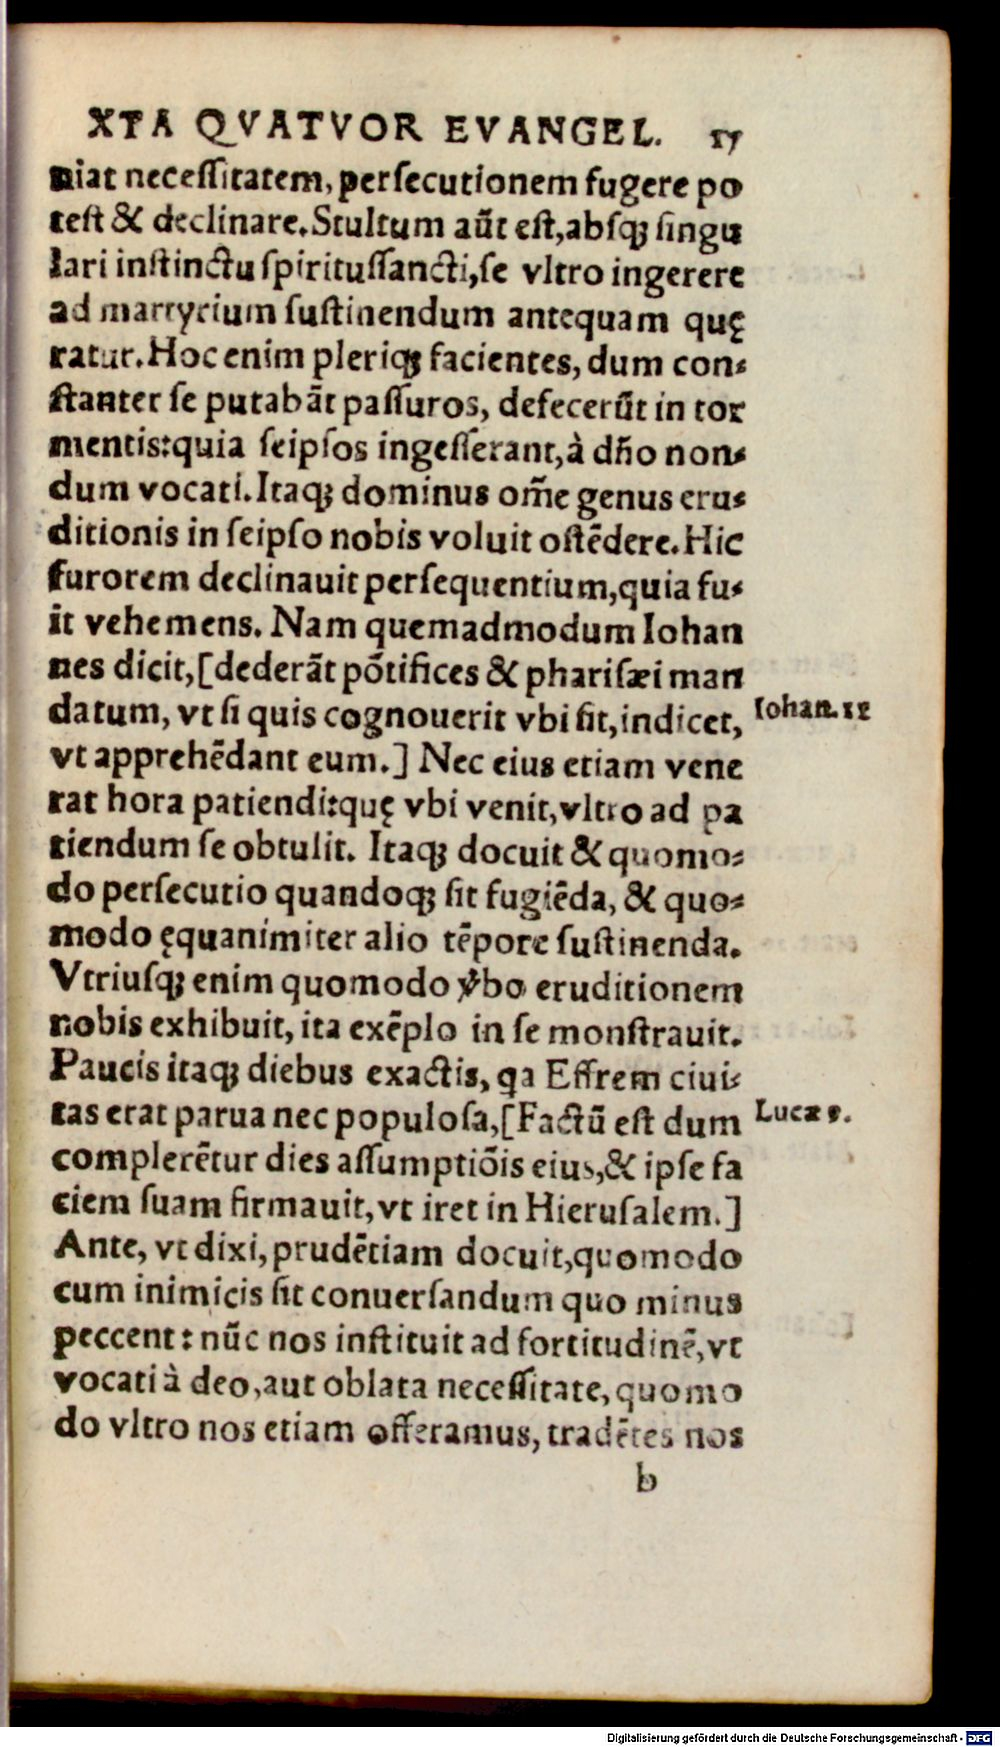 XTA QVATVOR EVANGEL. 17
niat necessitatem, persecutionem fugere po
test & declinare. Stultum aũt est, absq; singu
lari instinctu spiritussancti, se vltro ingerere
ad martyrium sustinendum antequam quę
ratur. Hoc enim pleriq; facientes, dum con-
stanter se putabãt passuros, defecerũt in tor
mentis: quia seipsos ingesserant, à dño non-
dum vocati. Itaq; dominus om̃e genus eru-
ditionis in seipso nobis voluit ostẽdere. Hic
furorem declinauit persequentium, quia fu-
it vehemens. Nam quemadmodum Iohan
nes dicit, [dederãt põtifices & pharisæi man
datum, vt si quis cognouerit vbi sit, indicet,
Iohan. 11
vt apprehẽdant eum.] Nec eius etiam vene
rat hora patiendi: quę vbi venit, vltro ad pa
tiendum se obtulit. Itaq; docuit & quomo-
do persecutio quandoq; sit fugiẽda, & quo-
modo ęquanimiter alio tẽpore sustinenda.
Vtriusq; enim quomodo v̾bo eruditionem
nobis exhibuit, ita exẽplo in se monstrauit.
Paucis itaq; diebus exactis, qa Effrem ciui-
tas erat parua nec populosa, [Factũ est dum
Lucæ 9.
complerẽtur dies assumptiõis eius, & ipse fa
ciem suam firmauit, vt iret in Hierusalem.]
Ante, vt dixi, prudẽtiam docuit, quomodo
cum inimicis sit conuersandum quo minus
peccent: nũc nos instituit ad fortitudinẽ, vt
vocati à deo, aut oblata necessitate, quomo
do vltro nos etiam offeramus, tradẽtes nos
b
Digitalisierung gefördert durch die Deutsche Forschungsgemeinschaft - DFG